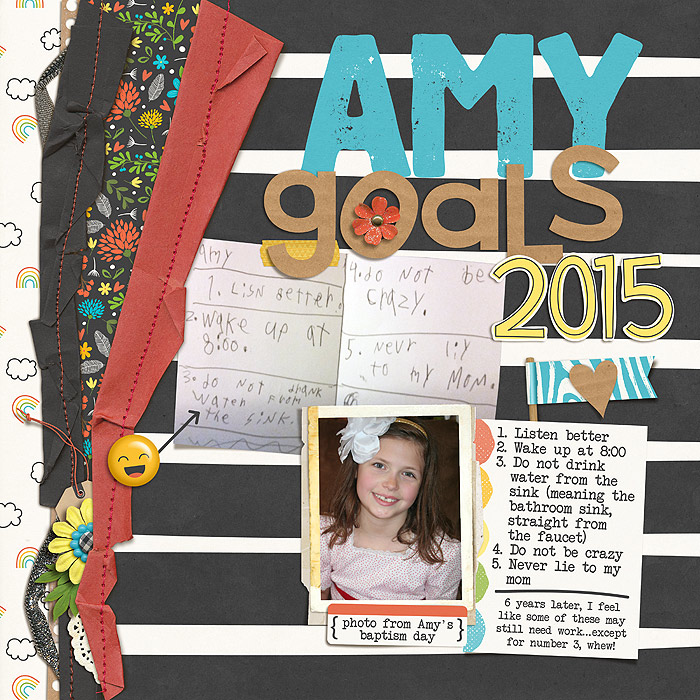 AMY
goals
2015
Amy
1. Lisn better.
2. Wake up at
8:00.
3. do not drank
water from
the sink.
4. do not be
crazy.
5. nevr liy
to my Mom.
1. Listen better
2. Wake up at 8:00
3. Do not drink
water from the
sink (meaning the
bathroom sink,
straight from
the faucet)
4. Do not be crazy
5. Never lie to my
mom
6 years later, I feel
like some of these may
still need work...except
for number 3, whew!
{ photo from Amy's }
baptism day